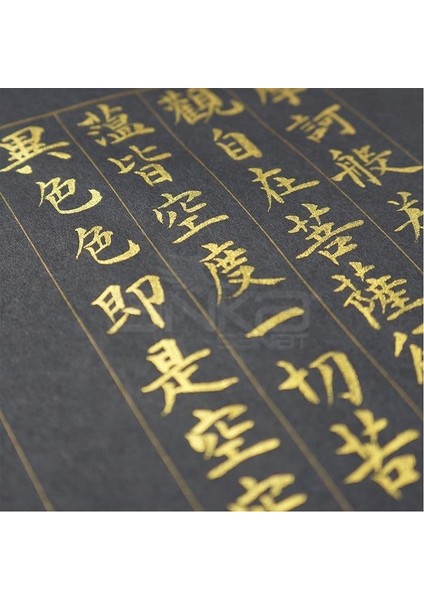 摩訶般若
觀自在菩薩
蘊皆空度一切苦
異色色即是空空